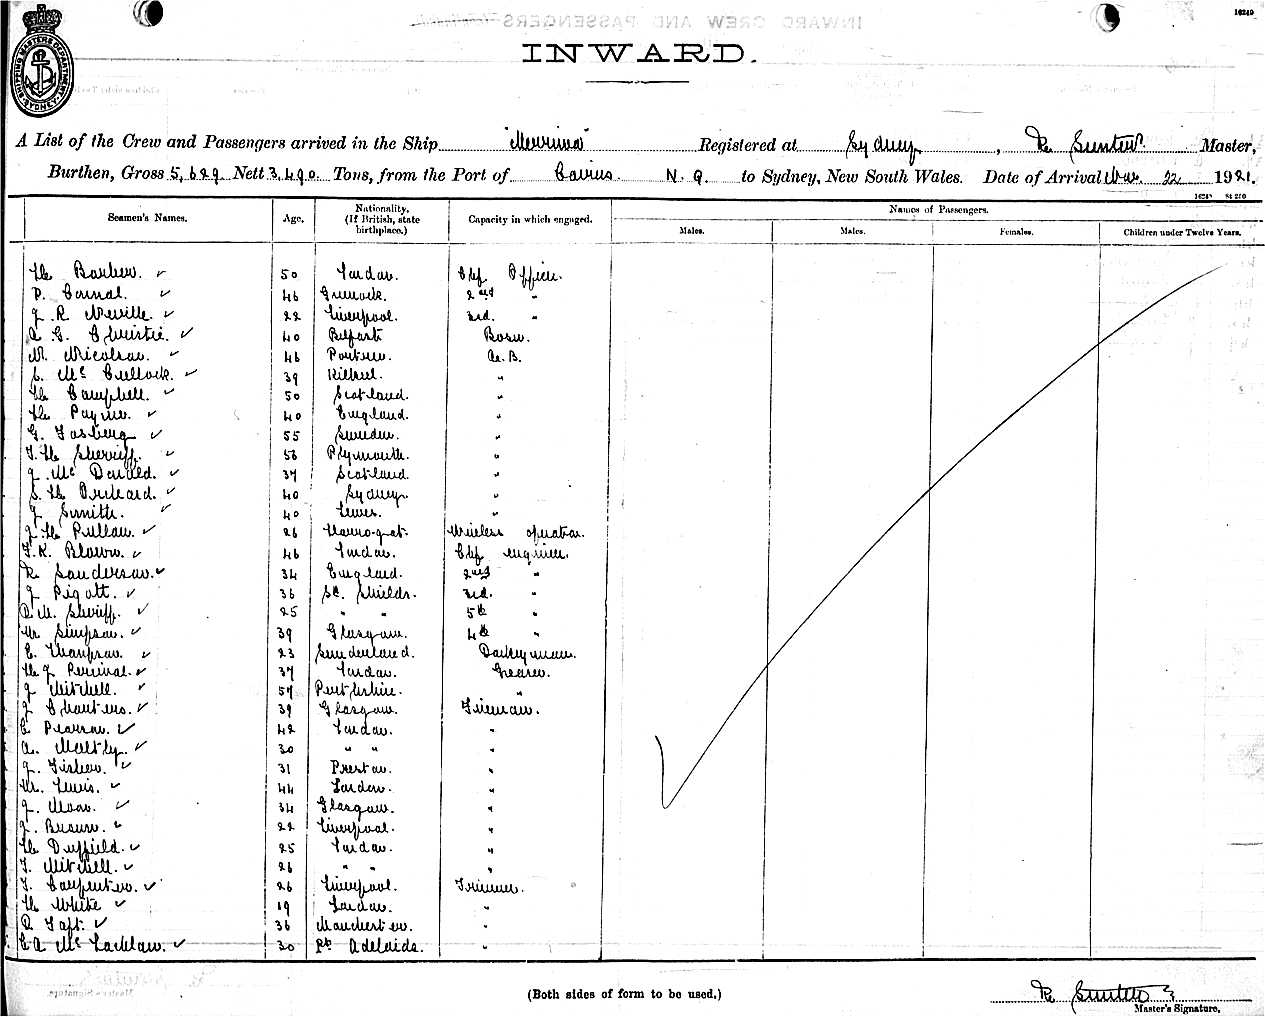 16240
INWARD CREW AND PASSENGERS
SHIPPING MASTERS DEPARTMENT SYDNEY
INWARD.
A List of the Crew and Passengers arrived in the Ship "Merriwa" Registered at Sydney, R. Sunter Master,
Burthen, Gross 5,629 Nett 3,490 Tons, from the Port of Cairns. N. Q. to Sydney, New South Wales. Date of Arrival 22 1921.
Seamen's Names. Age. Nationality. (If British, state birthplace.) Capacity in which engaged. Names of Passengers.
Males. Males. Females. Children under Twelve Years.
H. Barber. 50 London. Chf Officer.
46 Greenock. 2nd "
J. R. Neville. 22 Liverpool. 3rd. "
A. G. Christie. 40 Belfast Bosn.
N. Nicolson. 46 A.B.
McCullock. 39 "
H. Campbell. 50 Scotland. "
H. Payne. 40 England. "
G. Fosberg 55 Sweden. "
T. H. Sherriff. 53 Plymouth. "
J. McDonald. 37 Scotland. "
S. H. 40 Sydney. "
J. Smith. 40 Lewes. "
J. H. Pullan. 26 Harrogate. Wireless operator.
F. K. Blown. 46 London. Chf engineer.
R. Sanderson. 34 England. 2nd "
J. Pigott. 36 St. Shields. 3rd. "
A. M. Sheriff. 25 " " 5th "
W. Simpson. 39 Glasgow. 4th "
E. Thompson. 23 Sunderland. Donkeyman.
H. J. Percival. 37 London. Greaser.
J. Mitchell. 57 Perthshire. "
J. Charters. 39 Glasgow. Fireman.
C. Pearson. 42 London. "
A. Maltby. 30 " " "
J. Fisher. 31 Preston. "
W. Lewis. 44 London. "
J. Moon. 34 Glasgow. "
J. Brown. 22 Liverpool. "
H. Duffield. 25 London. "
T. Mitchell. 26 " " "
T. Carpenter. 26 Liverpool. Trimmer.
H. White 19 London. "
R. Taft. 36 Manchester. "
E A McLachlan. 30 Pt Adelaide. "
(Both sides of form to be used.)
R. Sunter
Master's Signature.